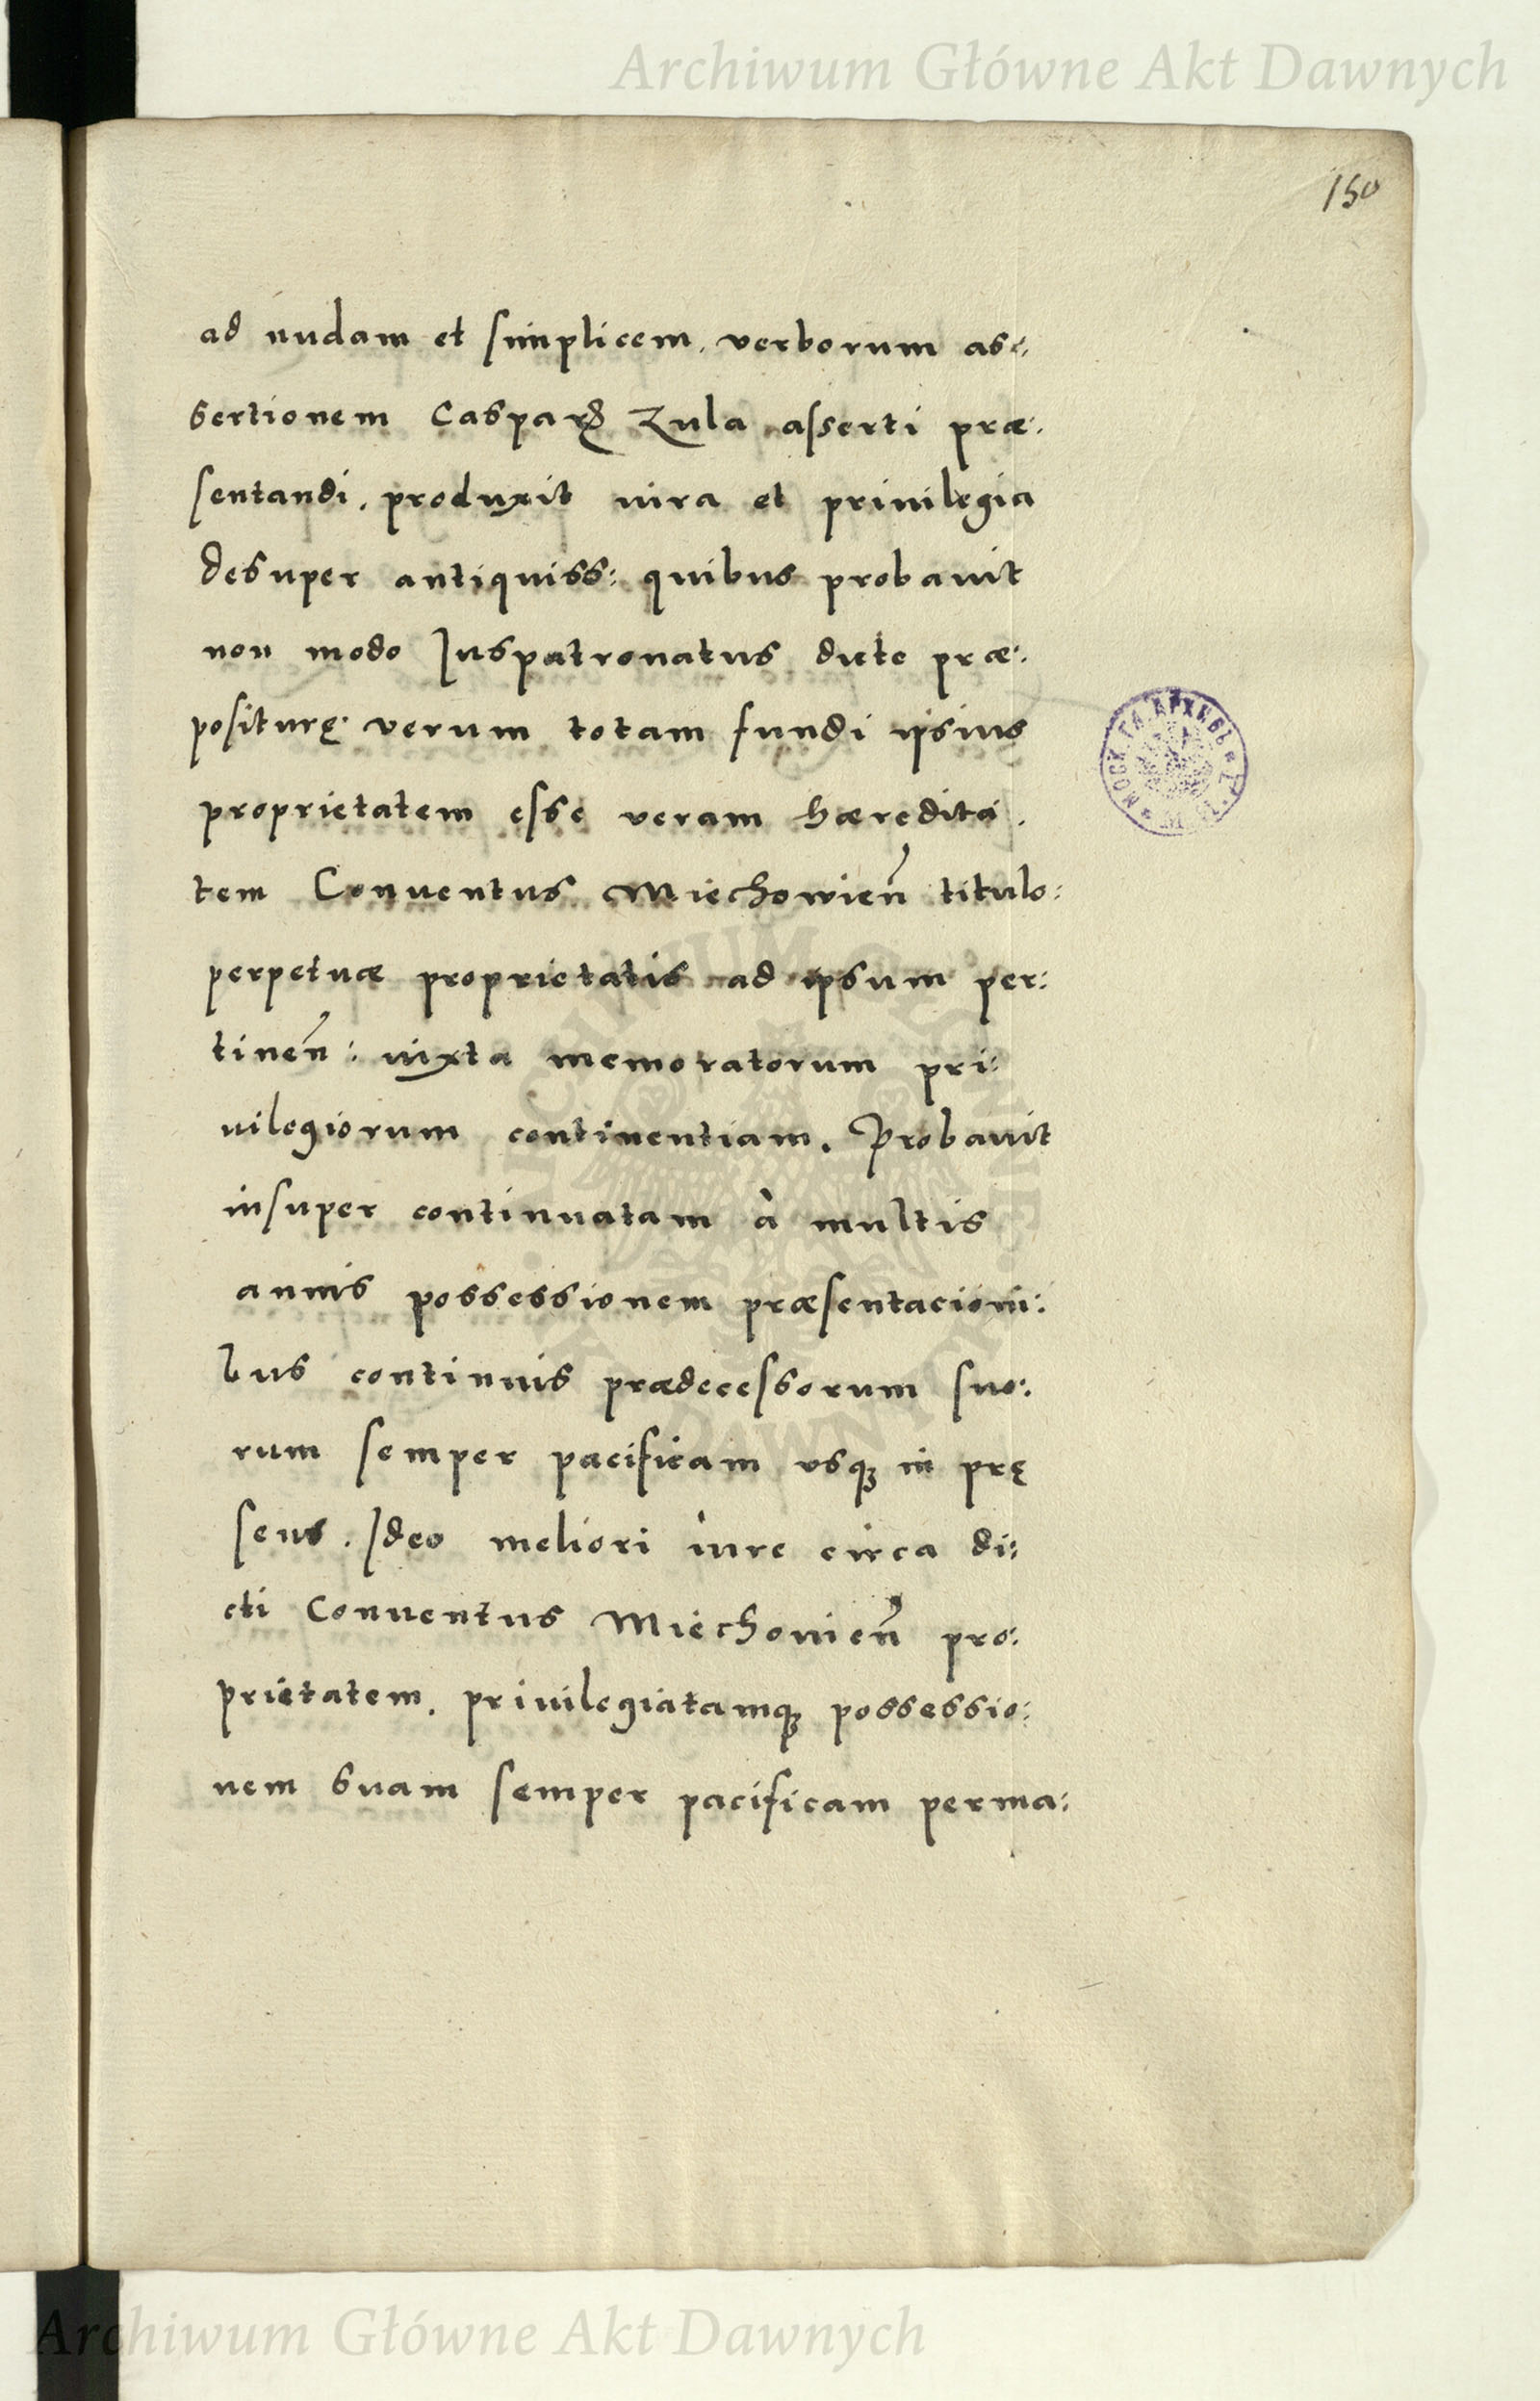 Archiwum Główne Akt Dawnych
150
ad nudam et simplicem. verborum as:
sertionem Caspar Zula asserti præ:
sentandi. produxit iura et priuilegia
desuper antiquiss: quibus probauit
non modo Juspatronatus dicte præ:
positurę. verum totam fundi ipsius
proprietatem esse veram hæredita.
tem Conuentus Miechowien̄ titulo:
perpetuæ proprietatis ad ipsum per:
tinen̄: iuxta memoratorum pri:
uilegiorum continentiam. Probauit
insuper continuatam à multis
annis possessionem præsentacioni:
bus continuis prædecessorum suo:
rum semper pacificam vsqꝫ in prę
sens. Ideo meliori iure circa di:
cti Conuentus Miechouien̄ pro:
prietatem. priuilegiatamqꝫ possessio:
nem suam semper pacificam perma:
Archiwum Główne Akt Dawnych